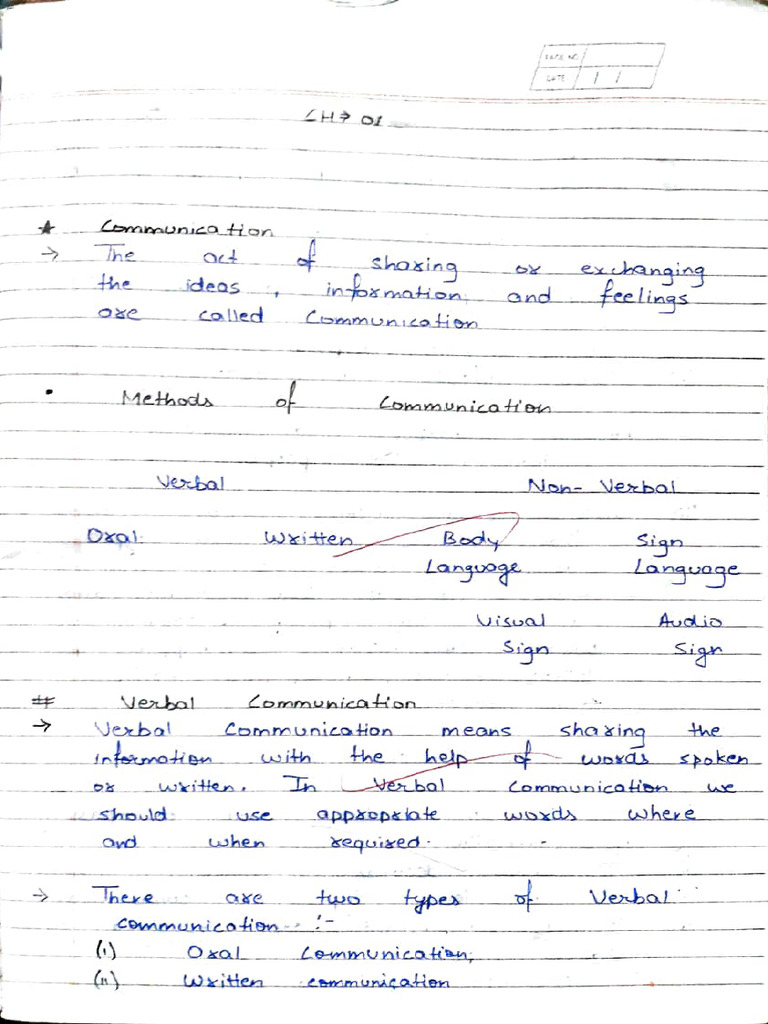 PAGE NO.
DATE / /
CH → 01
★ Communication
→ The act of sharing or exchanging
the ideas, information and feelings
are called Communication
• Methods of Communication
Verbal Non-Verbal
Oral Written Body Sign
Language Language
Visual Audio
Sign Sign
# Verbal Communication
→ Verbal Communication means sharing the
information with the help of words spoken
or written. In Verbal Communication we
should use appropriate words where
and when required.
→ There are two types of Verbal
communication :-
(i) Oral Communication,
(ii) Written communication